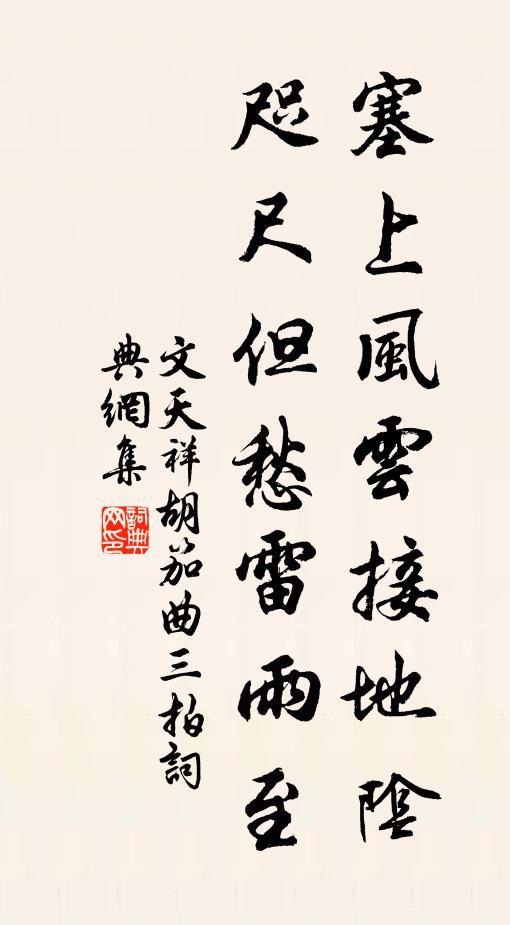 塞上風雲接地陰
咫尺但愁雷雨至
文天祥胡笳曲三拍詞
典網集
詞典
网印